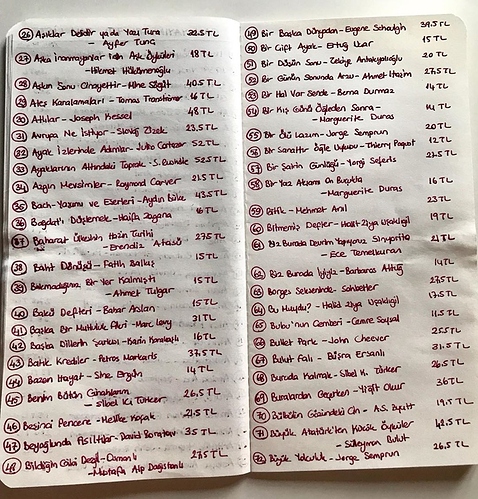 26 Aşıklar Delidir ya da Yazı Tura 32.5 TL
- Ayfer Tunç
27 Aşka İnanmayanlar için Aşk Öyküleri 18 TL
- Hikmet Hükümenoğlu
28 Aşkın Sonu Cinayettir - Mine Söğüt 40.5 TL
29 Ateş Karalamaları - Tomas Tranströmer 16 TL
30 Atlılar - Joseph Kessel 48 TL
31 Avrupa Ne İstiyor - Slavoj Zizek 23.5 TL
32 Ayak İzlerinde Adımlar - Julio Cortazar 52 TL
33 Ayaklarının Altındaki Toprak - S. Rushdie 52.5 TL
34 Azgın Mevsimler - Raymond Carver 21.5 TL
35 Bach - Yaşamı ve Eserleri - Aydın Büke 43.5 TL
36 Bağdat'ı Düşlemek - Haifa Zangana 16 TL
37 Baharat Ülkesinin Hazin Tarihi 27.5 TL
- Erendiz Atasü
38 Bahıt Dönüğü - Fatih Balkış 15 TL
39 Bakmadığınız Bir Yer Kalmıştı 15 TL
- Ahmet Tulgar
40 Bakü Defterleri - Babür Aslan 15 TL
41 Başka Bir Mutluluk Fikri - Marc Levy 31 TL
42 Başka Dillerin Şarkısı - Karin Karakaşlı 16 TL
43 Batık Krediler - Petros Markaris 37.5 TL
44 Bazen Hayat - Sine Ergün 14 TL
45 Benim Bütün Günahlarım 26.5 TL
- Sibel K. Türker
46 Beşinci Pencere - Melike Koçak 21.5 TL
47 Beyoğlunda Fısıltılar - David Boratav 35 TL
48 Bildiğin Gibi Değil - Osmanlı 27.5 TL
- Mustafa Alp Dağıstanlı
49 Bir Başka Dünyadan - Evgene Schoulgin 39.5 TL
50 Bir Çift Ayak - Ertuğ Uçar 15 TL
51 Bir Düğün Sonu - Zekiye Antakyalıoğlu 20 TL
52 Bir Günün Sonunda Arzu - Ahmet Haşim 27.5 TL
53 Bir Hal Var Sende - Berna Durmaz 14 TL
54 Bir Kış Günü Öğleden Sonra - 14 TL
- Marguerite Duras
55 Bir Ölü Lazım - Jorge Semprun 20 TL
56 Bir Sanattır Öğle Uykusu - Thierry Paquot 12 TL
57 Bir Şairin Günlüğü - Yorgo Seferis 27.5 TL
58 Bir Yaz Akşamı On Buçukta 16 TL
- Marguerite Duras
59 Bitik - Mehmet Anıl 23 TL
60 Bitmemiş Defter - Halit Ziya Uşaklıgil 19 TL
61 Biz Burada Devrim Yapıyoruz Sinyorita 21 TL
- Ece Temelkuran
62 Biz Burada İyiyiz - Barbaros Altuğ 14 TL
63 Borges Sekseninde - Sohbetler 27.5 TL
64 Bu Muydu? - Halid Ziya Uşaklıgil 17.5 TL
65 Bubu'nun Çemberi - Cemre Soysal 11.5 TL
66 Bullet Park - John Cheever 25.5 TL
67 Bulut Falı - Büşra Ersanlı 31.5 TL
68 Burada Kalmak - Sibel K. Türker 26.5 TL
69 Buralardan Geçerken - Yiğit Okur 36 TL
70 Bülbülün Gözündeki Cin - A.S. Byatt 19.5 TL
71 Büyük Atatürk'ten Küçük Öyküler 42.5 TL
- Süleyman Bulut
72 Büyük Yolculuk - Jorge Semprun 26.5 TL